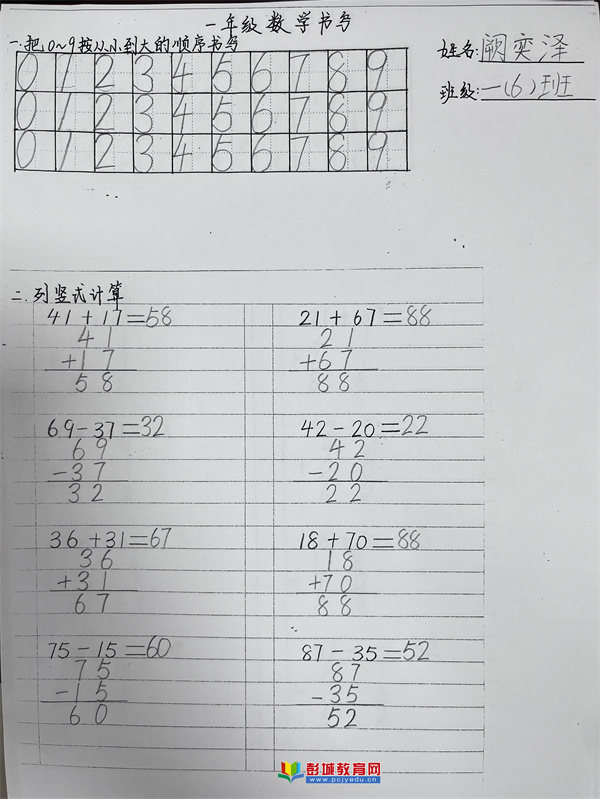 一年级数学书写
一.把0~9按从小到大的顺序书写
姓名:阙奕泽
班级:一(6)班
0 1 2 3 4 5 6 7 8 9
0 1 2 3 4 5 6 7 8 9
0 1 2 3 4 5 6 7 8 9
二.列竖式计算
41+17=58
41
+17
58
21+67=88
21
+67
88
69-37=32
69
-37
32
42-20=22
42
-20
22
36+31=67
36
+31
67
18+70=88
18
+70
88
75-15=60
75
-15
60
87-35=52
87
-35
52
彭城教育网
www.pcjyedu.cn